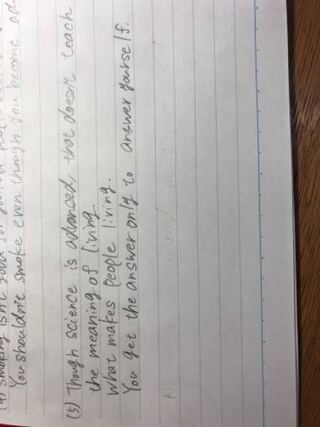 (4) Smoking isn't good for
You shouldn't smoke even though you become ad
(5) Though science is advanced that doesn't teach
the meaning of living.
What makes people living.
You get the answer only to answer yourself.